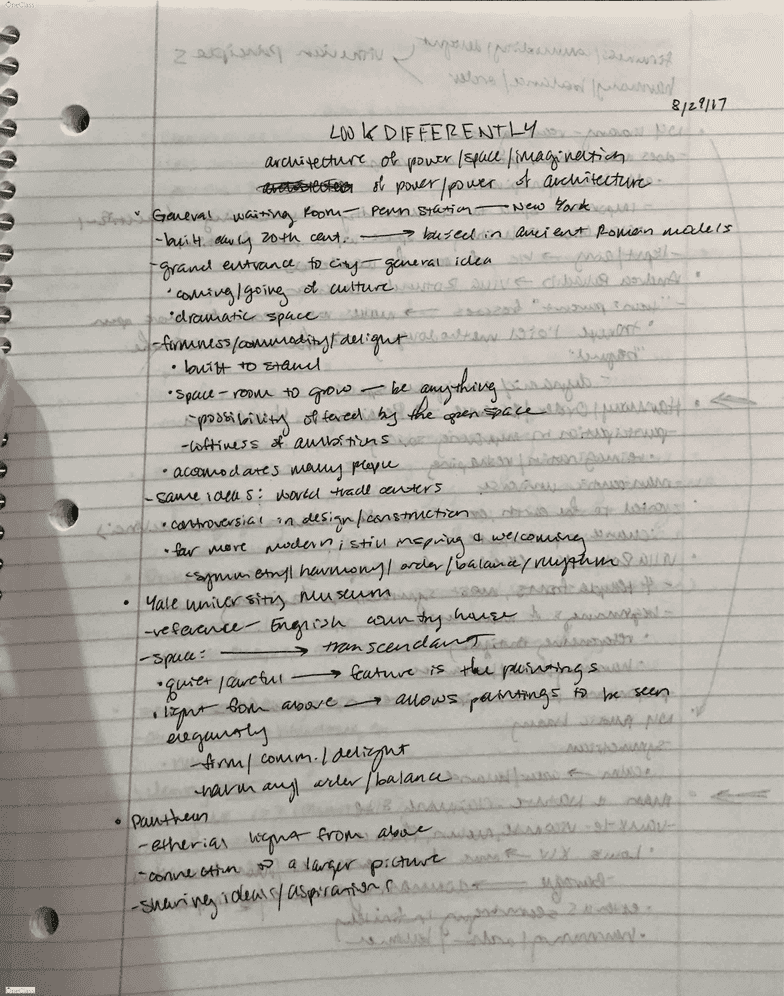 8/29/17
LOOK DIFFERENTLY
architecture of power/space/imagination
of power/power of architecture
• General waiting Room — Penn Station — New York
- built early 20th cent. → based in ancient Roman models
- grand entrance to city — general idea
• coming/going of culture
• dramatic space
- firmness/commodity/delight
• built to stand
• space - room to grow — be anything
- possibility offered by the open space
- loftiness of ambitions
• accomodates many people
- same ideas: world trade centers
• controversial in design/construction
• far more modern; still inspiring & welcoming
- symmetry/harmony/order/balance/rhythm
• Yale university Museum
- reference - English country house
- space: → transcendant
• quiet/careful → feature is the paintings
• light from above → allows paintings to be seen
elegantly
- firm/comm./delight
- harmony/order/balance
• Pantheon
- etherial light from above
- connection to a larger picture
- sharing ideals/aspirations